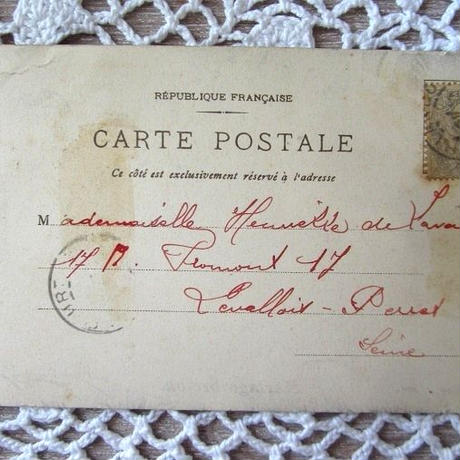 RÉPUBLIQUE FRANÇAISE
CARTE POSTALE
Ce côté est exclusivement réservé à l'adresse
Mademoiselle Henriette de
17 R. Fromont 17
Levallois-Perret
Seine